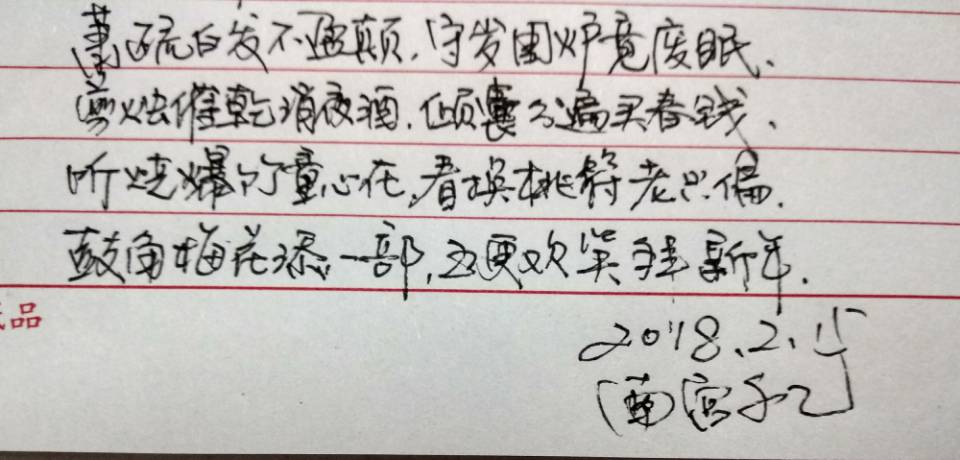 萧疏白发不盈颠,守岁围炉竟废眠、
剪烛催乾消夜酒,倾囊分遍买春钱、
听烧爆竹童心在,看换桃符老兴偏.
鼓角梅花添一部,五更欢笑拜新年.
品
2018.2.15
南宫